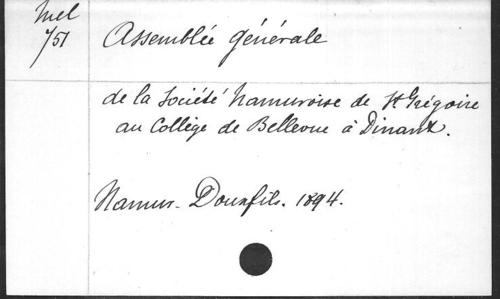 Mel
751
Assemblée Générale
de la Société Namuroise de St Grégoire
au Collège de Bellevue à Dinant.
Namur - Douxfils. 1894.